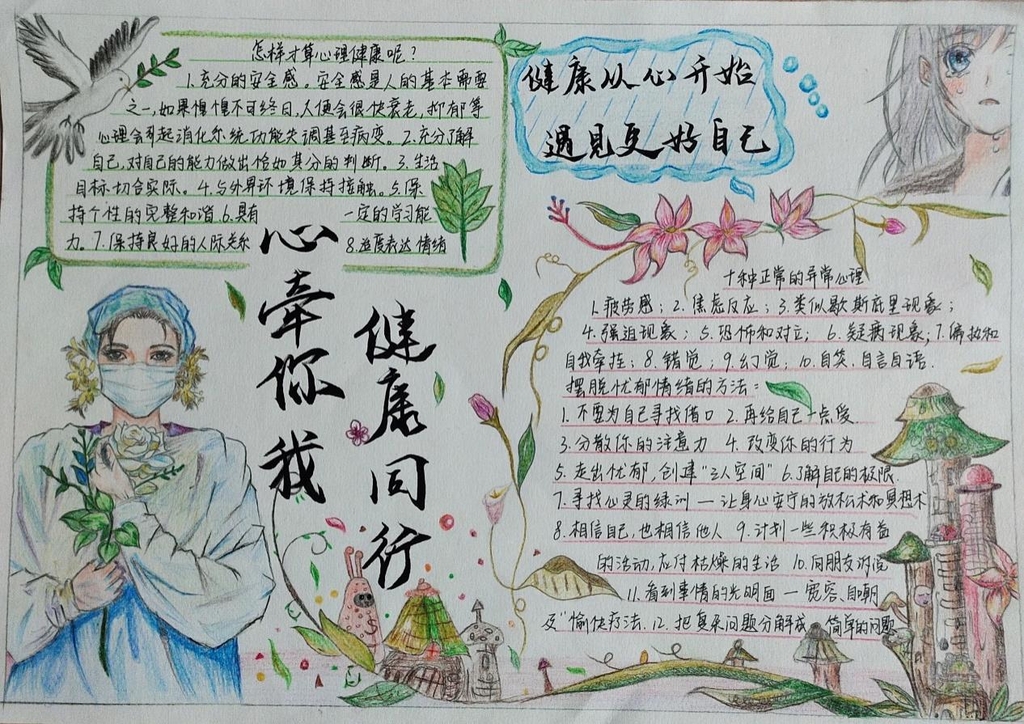 怎样才算心理健康呢?
1.充分的安全感。安全感是人的基本需要
之一,如果惶惶不可终日,人便会很快衰老,抑郁等
心理会引起消化系统功能失调甚至病变。2.充分了解
自己,对自己的能力做出恰如其分的判断。3.生活
目标切合实际。4.与外界环境保持接触。5.保
持个性的完整和谐 6.具有 一定的学习能
力.7.保持良好的人际关系 8.适度表达情绪
健康从心开始
遇见更好自己
心牵你我
健康同行
十种正常的异常心理
1.疲劳感;2.焦虑反应;3.类似歇斯底里现象;
4.强迫现象;5.恐怖和对立;6.疑病现象;7.偏执和
自我牵挂;8.错觉;9.幻觉;10.自笑.自言自语.
摆脱忧郁情绪的方法:
1.不要为自己寻找借口 2.再给自己一点爱.
3.分散你的注意力 4.改变你的行为
5.走出忧郁,创建“三人空间” 6.了解自己的极限.
7.寻找心灵的绿洲 — 让身心安宁的放松术和冥想术
8.相信自己,也相信他人 9.计划一些积极有益
的活动,应付枯燥的生活 10.向朋友诉说
11.看到事情的光明面 — 宽容、自嘲
及“愉快疗法.12.把复杂问题分解成 简单的问题